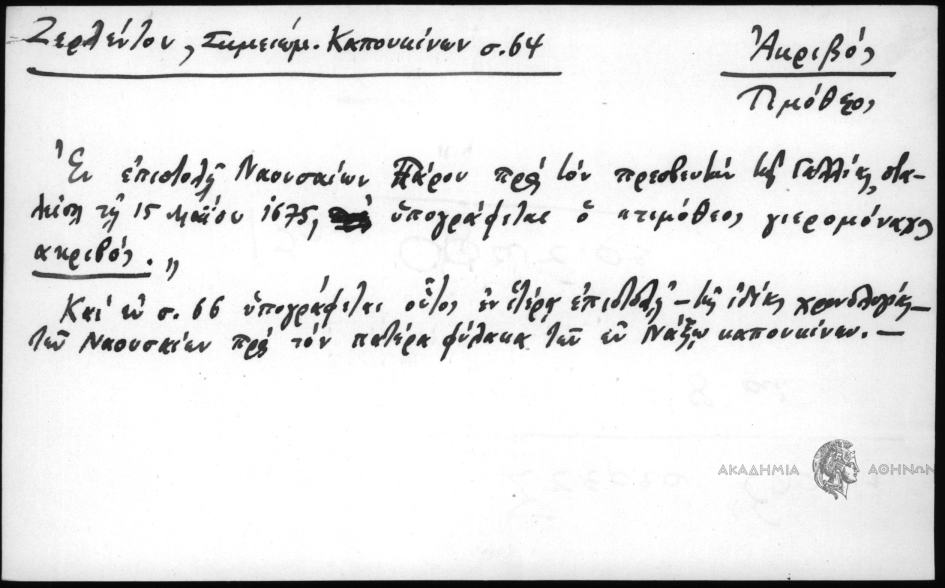 Ζερλέντου, Σημειώμ. Καπουκίνων σ. 64
Ἀκριβός
Τιμόθεος
Ἐν ἐπιστολῇ Ναουσαίων Πάρου πρὸς τὸν πρεσβευτὴν τῆς Γαλλίας, στα-
λείσῃ τῇ 15 Μαΐου 1675, ὑπογράφεται ὁ «τιμόθεος γιερομόναχος
ακριβός.»
Καὶ ἐν σ. 66 ὑπογράφεται οὗτος ἐν ἑτέρᾳ ἐπιστολῇ – τῆς ἰδίας χρονολογίας –
τῶν Ναουσαίων πρὸς τὸν πατέρα φύλακα τῶν ἐν Νάξῳ καπουκίνων. –
ΑΚΑΔΗΜΙΑ ΑΘΗΝΩΝ